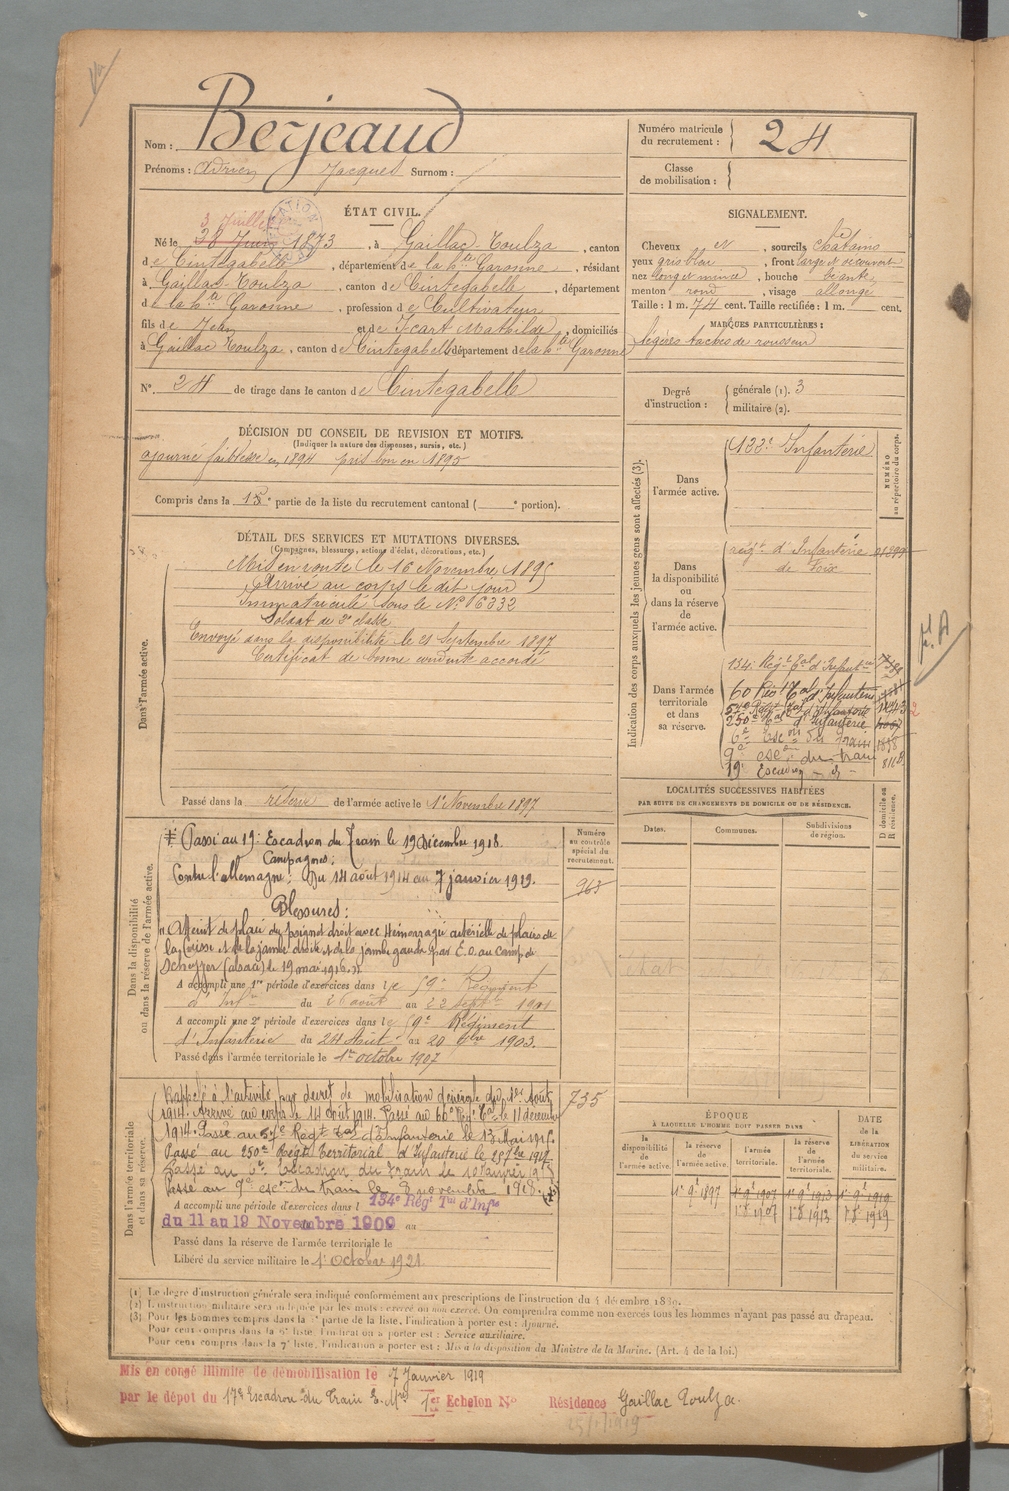 Nom : Berjeaud
Prénoms : Adrien Jacques Surnom :
Numéro matricule du recrutement : 24
Classe de mobilisation :
ÉTAT CIVIL.
3 Juillet
Né le 28 Juin 1873, à Gaillac-Toulza, canton
de Cintegabelle, département de la hte Garonne, résidant
à Gaillac-Toulza, canton de Cintegabelle, département
de la hte Garonne, profession de Cultivateur
fils de Jean et de Icart Mathilde, domiciliés
à Gaillac Toulza, canton de Cintegabelle département de la hte Garonne
N° 24 de tirage dans le canton de Cintegabelle
SIGNALEMENT.
Cheveux et sourcils châtains
yeux gris bleu, front large et découvert
nez long et mince, bouche béante
menton rond, visage allongé
Taille : 1 m. 74 cent. Taille rectifiée : 1 m. cent.
MARQUES PARTICULIÈRES :
légères taches de rousseur
Degré d'instruction : générale (1). 3
militaire (2).
DÉCISION DU CONSEIL DE REVISION ET MOTIFS.
(Indiquer la nature des dispenses, sursis, etc.)
ajourné faiblesse en 1894 pris bon en 1895
Compris dans la 1e partie de la liste du recrutement cantonal ( e portion).
DÉTAIL DES SERVICES ET MUTATIONS DIVERSES.
(Campagnes, blessures, actions d'éclat, décorations, etc.)
Dans l'armée active.
Mis en route le 16 Novembre 1895
Arrivé au corps le dit jour
Immatriculé sous le N°
Soldat de 2e classe
Envoyé dans la disponibilité le 21 Septembre 1897
Certificat de bonne conduite accordé
Passé dans la réserve de l'armée active le 1r Novembre 1897
Indication des corps auxquels les jeunes gens sont affectés (3).
NUMÉRO au répertoire du corps.
Dans l'armée active.
122e Infanterie
Dans la disponibilité ou dans la réserve de l'armée active.
régt d'Infanterie
de Foix
Dans l'armée territoriale et dans sa réserve.
134e Régt Tal d'Infanterie
60 Rég Tal d'Infanterie
250e Tal d'Infanterie
6e Escon du Train
9e escon du train
19e Escadron
LOCALITÉS SUCCESSIVES HABITÉES
PAR SUITE DE CHANGEMENTS DE DOMICILE OU DE RÉSIDENCE.
Dates. Communes. Subdivisions de région. D domicile ou R résidence.
Dans la disponibilité ou dans la réserve de l'armée active.
Numéro au contrôle spécial du recrutement.
968
Passé au 19e Escadron du Train le 19 Décembre 1918.
Campagnes :
Contre l'allemagne : Du 14 août 1914 au 7 janvier 1919.
Blessures :
"Atteint de plaie du poignet droit avec Hémorragie artérielle de plaies de
la Cuisse et de la jambe droite et de la jambe gauche par E.O. au Camp de
(alsace) le 19 mai 1916."
A accompli une 1re période d'exercices dans le 59e Régiment
d'Infie du 26 août au 22 septre 1901
A accompli une 2e période d'exercices dans le 59e Régiment
d'Infanterie du 24 Août au 20 7bre 1903.
Passé dans l'armée territoriale le 1er octobre 1907
Dans l'armée territoriale et dans sa réserve.
735
Rappelé à l'activité par décret de mobilisation générale du 1er Août
1914. Arrivé au corps le 14 août 1914. Passé au 60e Régt Tal le 11 décembre
1914. Passé au 57e Régt Tal d'Infanterie le 13 Mai 1915.
Passé au 250e Régt Territorial d'Infanterie le
Passé au 6e Escadron du Train le
Passé au 9e escon du train le 3 novembre 1918.
A accompli une période d'exercices dans l 134e Régt Tal d'Infie
du 11 au 19 Novembre 1909 au
Passé dans la réserve de l'armée territoriale le
Libéré du service militaire le 1r Octobre 1921
ÉPOQUE
À LAQUELLE L'HOMME DOIT PASSER DANS
la disponibilité de l'armée active. la réserve de l'armée active. l'armée territoriale. la réserve de l'armée territoriale.
DATE de la LIBÉRATION du service militaire.
1r 9 1897 1r 9 1907 1r 9 1913 1r 9 1919
1907 1913 1919
(1) Le degré d'instruction générale sera indiqué conformément aux prescriptions de l'instruction du 4 décembre 1889.
(2) L'instruction militaire sera indiquée par les mots : exercé ou non exercé. On comprendra comme non exercés tous les hommes n'ayant pas passé au drapeau.
(3) Pour les hommes compris dans la partie de la liste, l'indication à porter est : Ajourné.
Pour ceux compris dans la 5e liste, l'indication à porter est : Service auxiliaire.
Pour ceux compris dans la 7e liste, l'indication à porter est : Mis à la disposition du Ministre de la Marine. (Art. 4 de la loi.)
Mis en congé illimité de démobilisation le 7 Janvier 1919
par le dépôt du 17e Escadron du Train E. Mre 1er Echelon N° Résidence Gaillac Toulza.